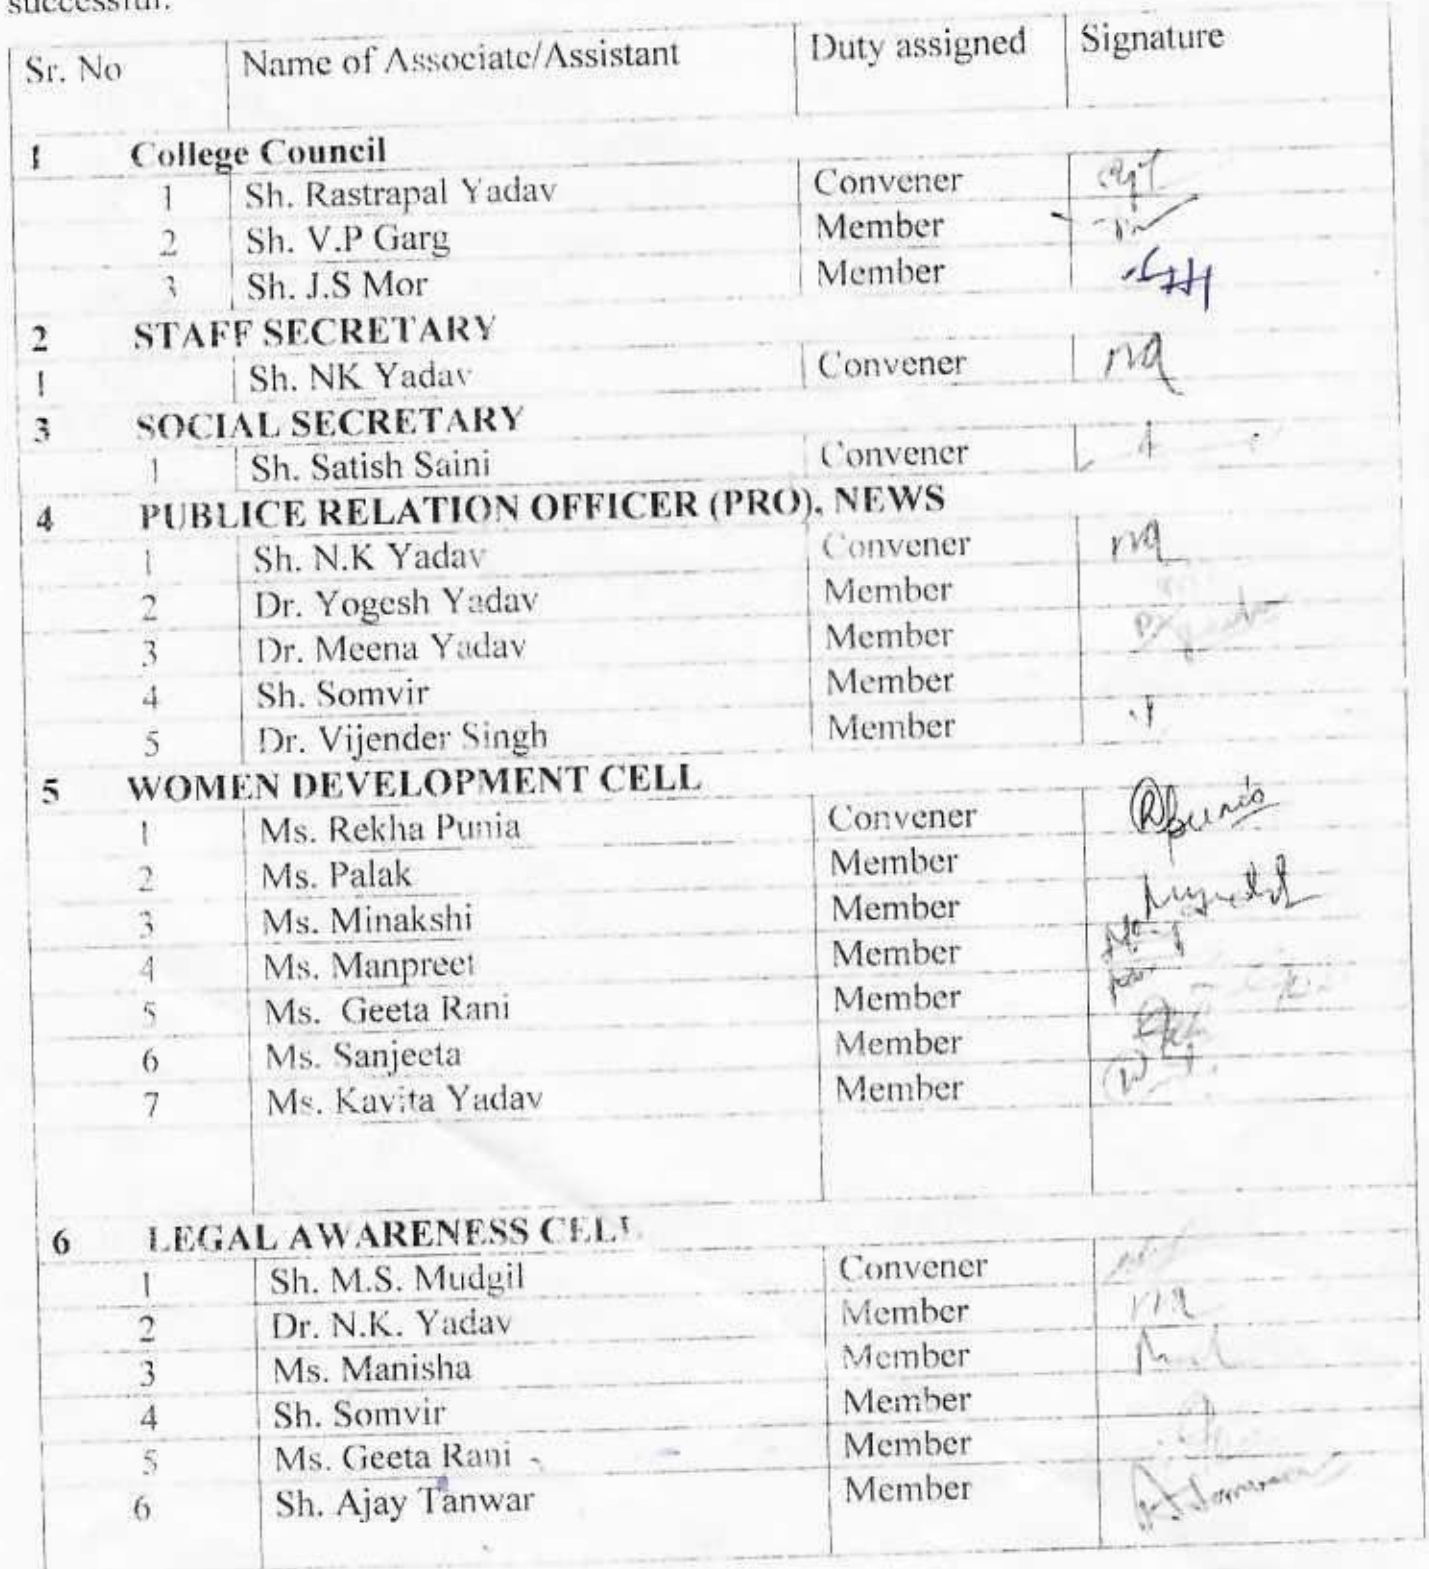 successful.
Sr. No Name of Associate/Assistant Duty assigned Signature
1 College Council
1 Sh. Rastrapal Yadav Convener
2 Sh. V.P Garg Member
3 Sh. J.S Mor Member
2 STAFF SECRETARY
1 Sh. NK Yadav Convener
3 SOCIAL SECRETARY
1 Sh. Satish Saini Convener
4 PUBLICE RELATION OFFICER (PRO), NEWS
1 Sh. N.K Yadav Convener
2 Dr. Yogesh Yadav Member
3 Dr. Meena Yadav Member
4 Sh. Somvir Member
5 Dr. Vijender Singh Member
5 WOMEN DEVELOPMENT CELL
1 Ms. Rekha Punia Convener
2 Ms. Palak Member
3 Ms. Minakshi Member
4 Ms. Manpreet Member
5 Ms. Geeta Rani Member
6 Ms. Sanjeeta Member
7 Ms. Kavita Yadav Member
6 LEGAL AWARENESS CELL
1 Sh. M.S. Mudgil Convener
2 Dr. N.K. Yadav Member
3 Ms. Manisha Member
4 Sh. Somvir Member
5 Ms. Geeta Rani Member
6 Sh. Ajay Tanwar Member